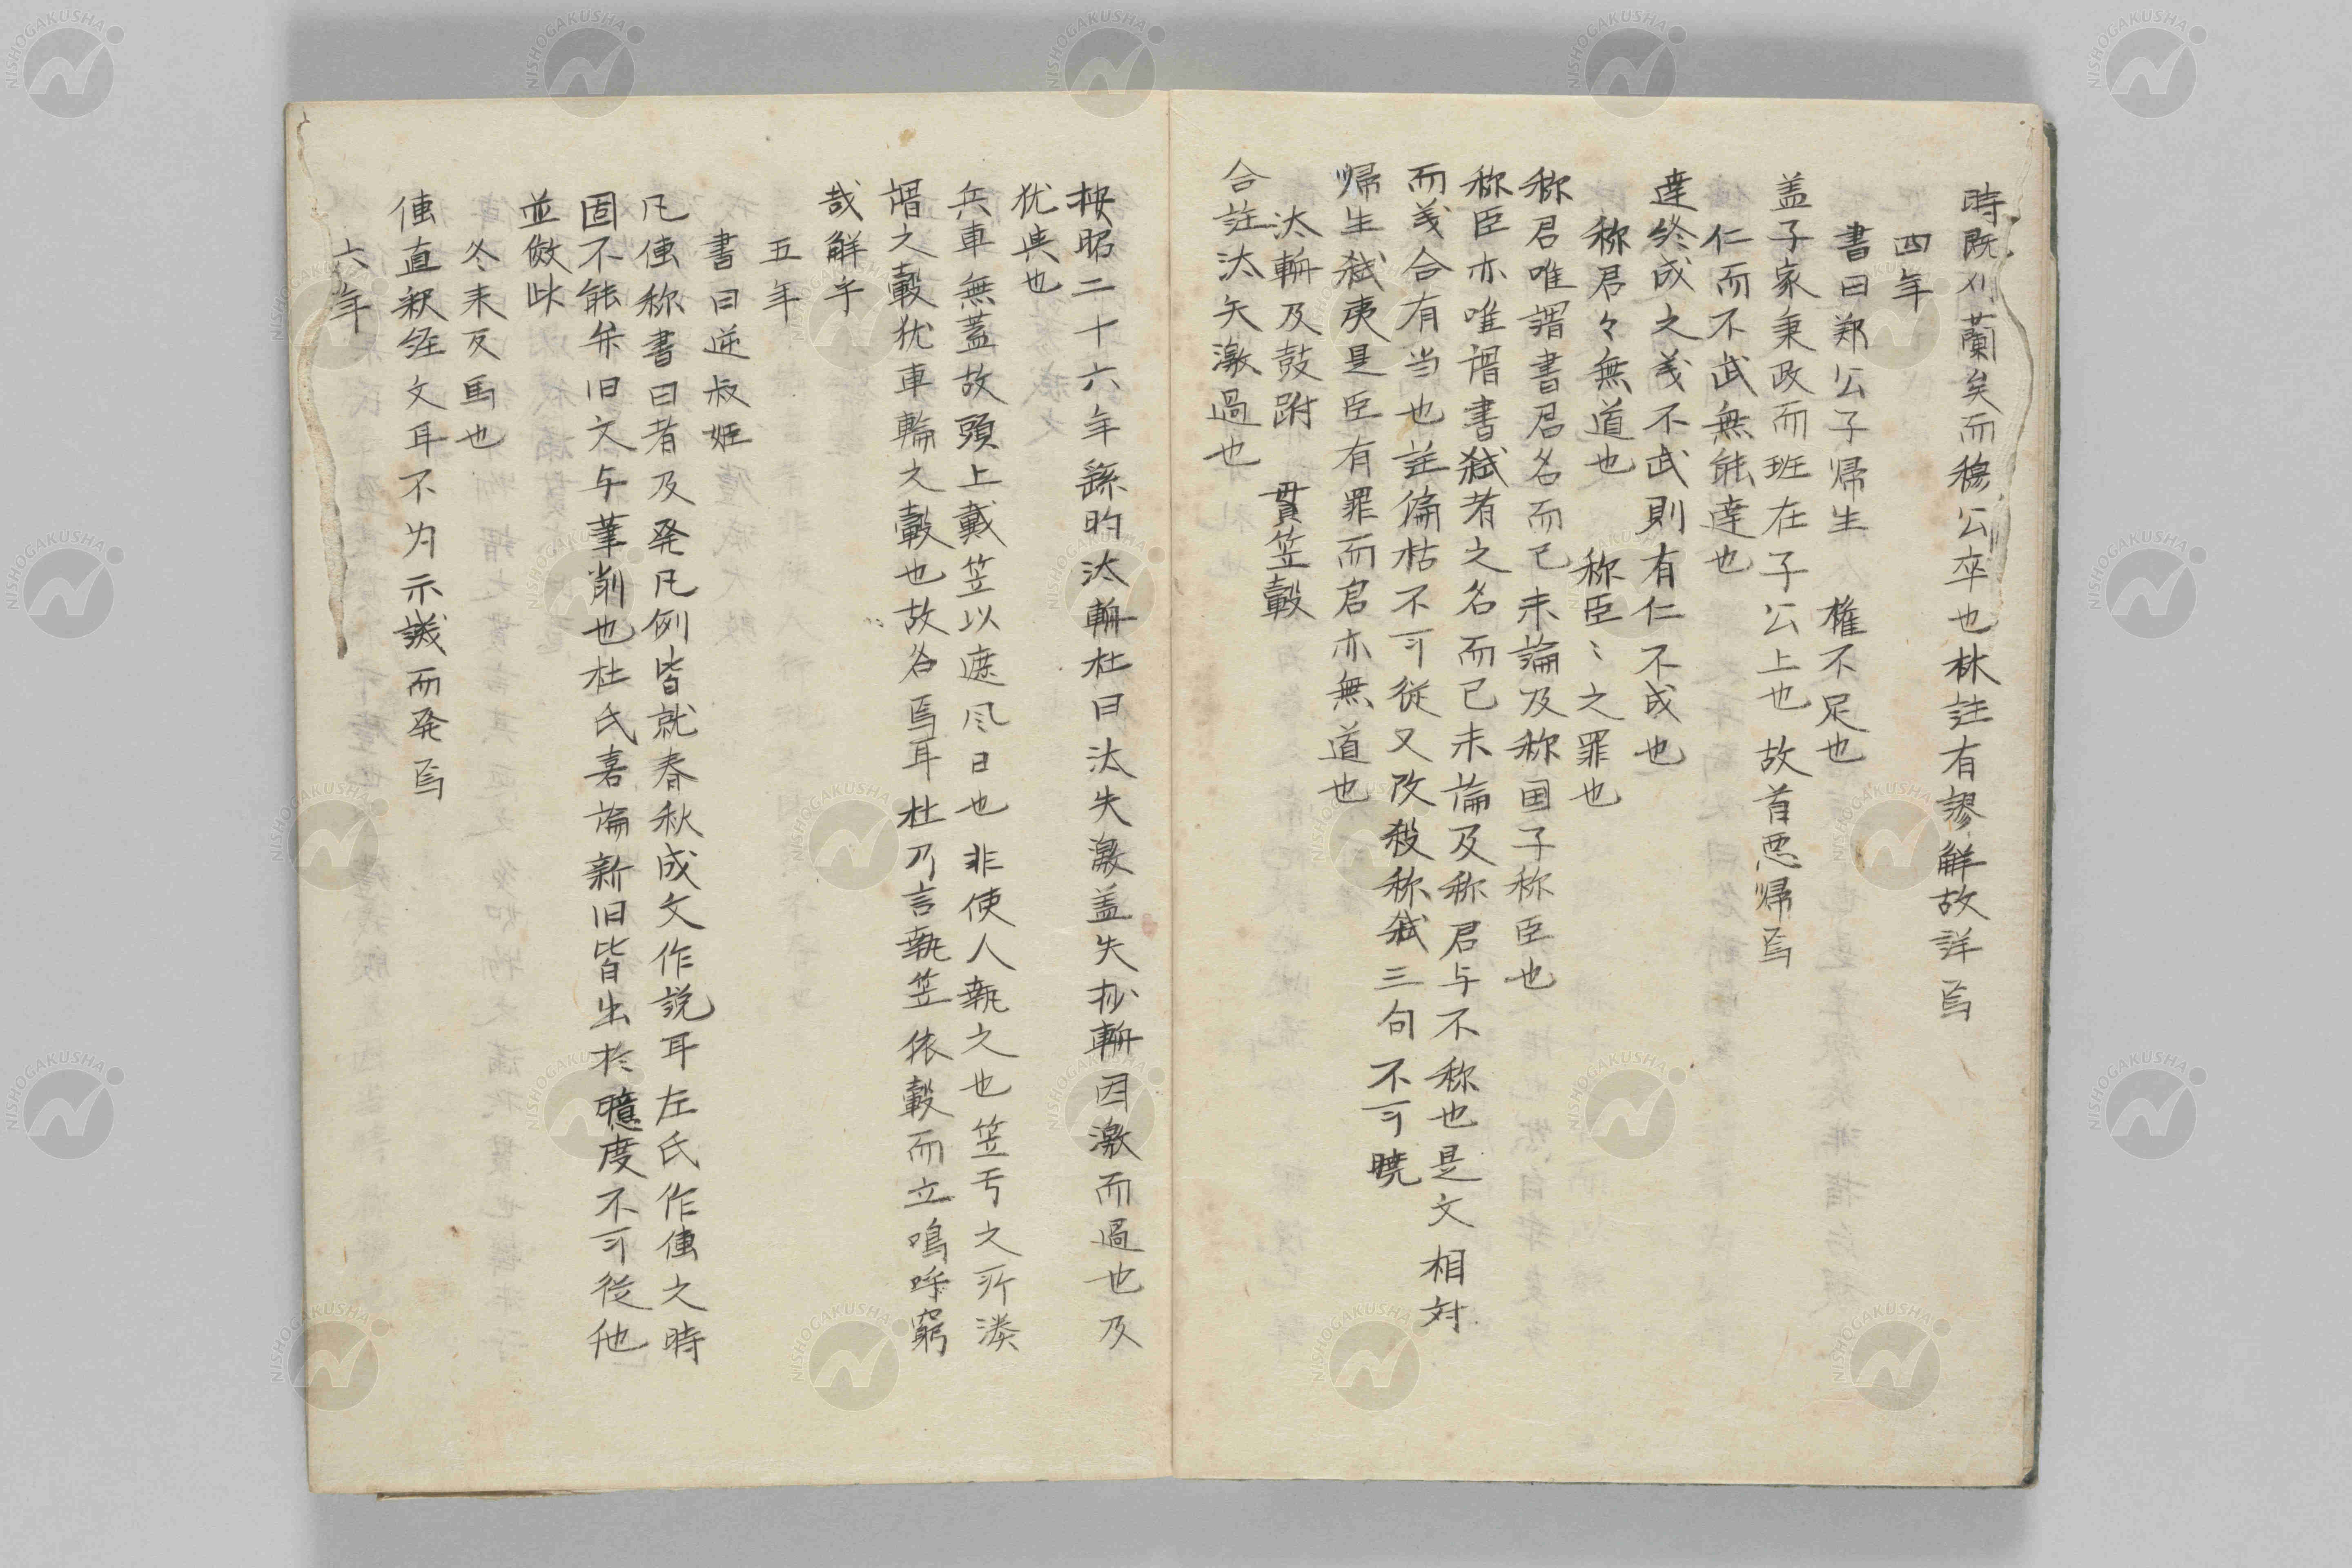 時既刈蘭矣而穆公卒也林註有謬解故詳焉
四年
書曰郑公子帰生 権不足也
盖子家秉政而班在子公上也故首悪帰焉
仁而不武無能達也
達終成之義不武則有仁不成也
称君々無道也 称臣〻之罪也
称君唯謂書君名而已未論及称国子称臣也
称臣亦唯謂書弑者之名而已未論及称君与不称也是文相対
而義合有当也註偏枯不可従又改殺称弑三句不可暁
帰生弑夷是臣有罪而君亦無道也
汰輈及鼓跗 貫笠轂
合註汰矢激過也
按昭二十六年繇朐汰輈杜曰汰矢激盖矢抄輈因激而過也及
犹与也
兵車無蓋故頭上戴笠以遮风日也非使人執之也笠亏之所湊
謂之轂犹車輪之轂也故名焉耳杜乃言執笠依轂而立嗚呼窮
哉解乎
五年
書曰逆叔姬
凡傳称書曰者及発凡例皆就春秋成文作説耳左氏作傳之時
固不能弁旧文与筆削也杜氏喜論新旧皆出於臆度不可従他
並倣此
冬来反馬也
傳直釈経文耳不为示譏而発焉
六年